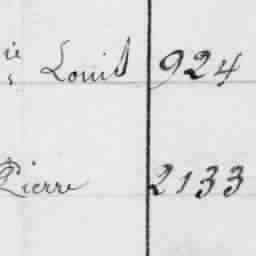 ie Louis 924
Pierre 2133